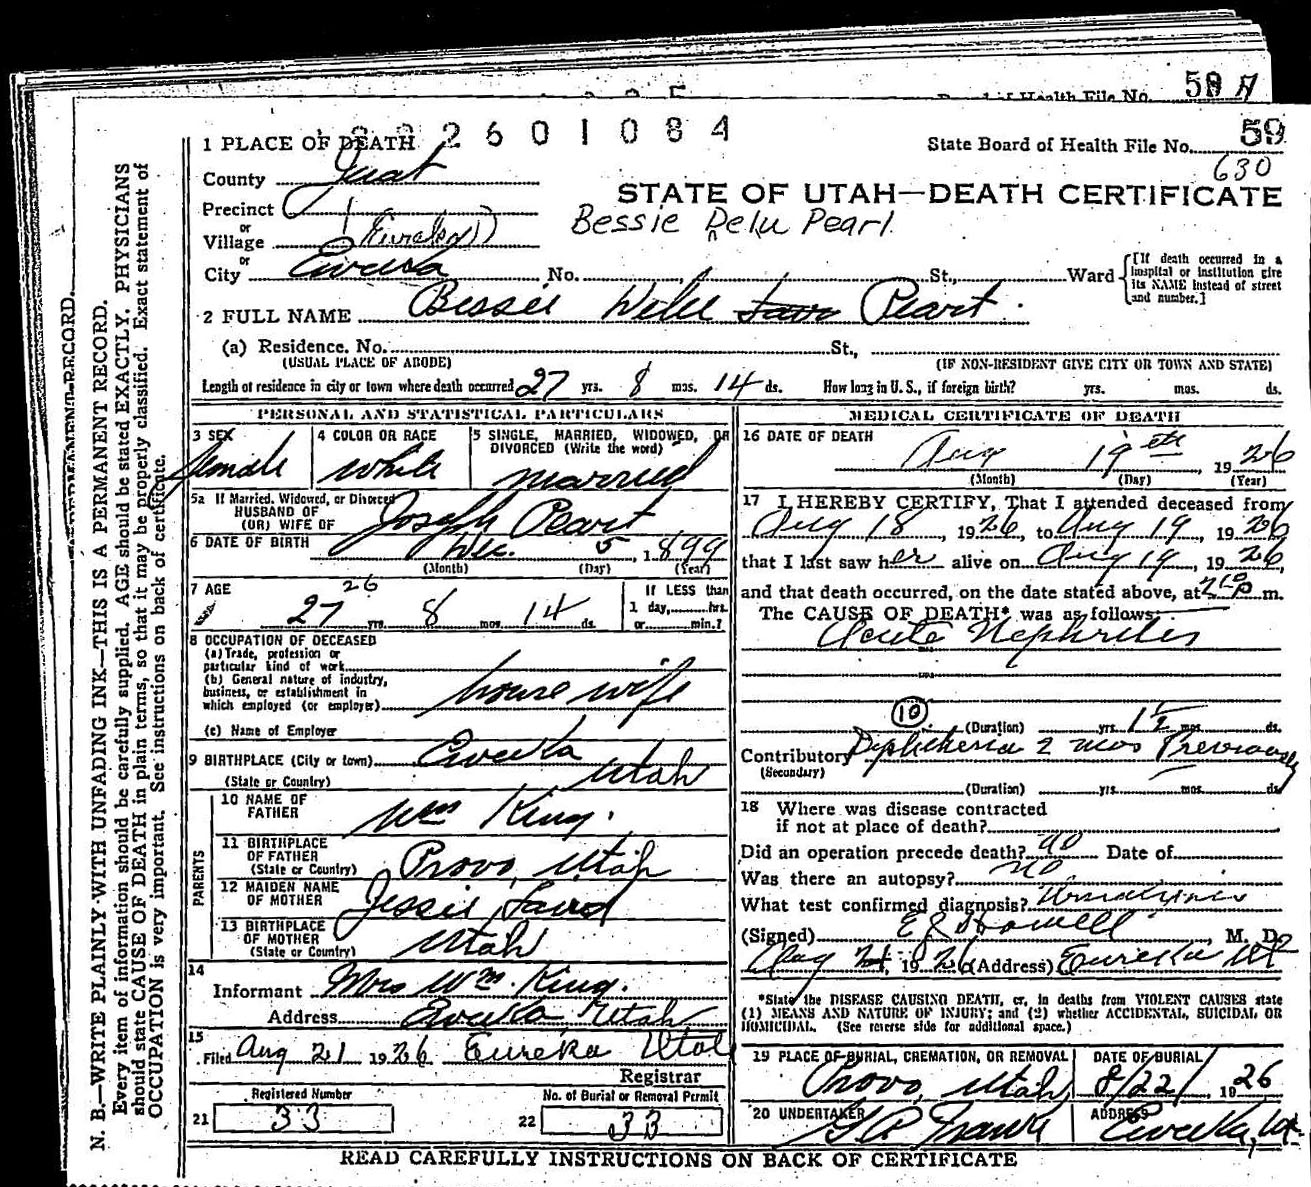 59
Board of Health File No.
1 PLACE OF DEATH 2601084
State Board of Health File No. 59
630
County Juab
STATE OF UTAH—DEATH CERTIFICATE
Precinct
Bessie Pearl
or
Village (Eureka)
or
City Eureka No. St., Ward
[If death occurred in a hospital or institution give its NAME instead of street and number.]
2 FULL NAME Bessie Peart
(a) Residence. No. St.,
(USUAL PLACE OF ABODE) (IF NON-RESIDENT GIVE CITY OR TOWN AND STATE)
Length of residence in city or town where death occurred 27 yrs. 8 mos. 14 ds. How long in U. S., if foreign birth? yrs. mos. ds.
PERSONAL AND STATISTICAL PARTICULARS
3 SEX female
4 COLOR OR RACE white
5 SINGLE, MARRIED, WIDOWED, OR DIVORCED (Write the word) married
5a If Married, Widowed, or Divorced
HUSBAND OF
(OR) WIFE OF Joseph Peart
6 DATE OF BIRTH Dec. 5, 1899
(Month) (Day) (Year)
7 AGE 26
27 yrs. 8 mos. 14 ds.
If LESS than
1 day, hrs.
or min.?
8 OCCUPATION OF DECEASED
(a) Trade, profession or
particular kind of work
(b) General nature of industry,
business, or establishment in
which employed (or employer) house wife
(c) Name of Employer
9 BIRTHPLACE (City or town) Eureka
(State or Country) Utah
PARENTS
10 NAME OF
FATHER Wm King.
11 BIRTHPLACE
OF FATHER
(State or Country) Provo, Utah
12 MAIDEN NAME
OF MOTHER Jessie Laird
13 BIRTHPLACE
OF MOTHER
(State or Country) Utah
14
Informant Mrs Wm. King.
Address Eureka, Utah
15
Filed Aug 21 1926 Eureka Utah
Registrar
Registered Number
21 33
No. of Burial or Removal Permit
22 33
MEDICAL CERTIFICATE OF DEATH
16 DATE OF DEATH
Aug 19th, 1926
(Month) (Day) (Year)
17 I HEREBY CERTIFY, That I attended deceased from
Aug 18, 1926, to Aug 19, 1926,
that I last saw her alive on Aug 19, 1926,
and that death occurred, on the date stated above, at m.
The CAUSE OF DEATH* was as follows:
Acute Nephritis
10 (Duration) yrs. 1½ mos. ds.
Contributory Diphtheria 2 mos Previously
(Secondary)
(Duration) yrs. mos. ds.
18 Where was disease contracted
if not at place of death?
Did an operation precede death? no Date of
Was there an autopsy? no
What test confirmed diagnosis? Urinalysis
(Signed) E J Howell M. D.
Aug 21, 1926 (Address) Eureka Ut
*State the DISEASE CAUSING DEATH, or, in deaths from VIOLENT CAUSES state
(1) MEANS AND NATURE OF INJURY; and (2) whether ACCIDENTAL, SUICIDAL OR
HOMICIDAL. (See reverse side for additional space.)
19 PLACE OF BURIAL, CREMATION, OR REMOVAL
Provo, Utah
DATE OF BURIAL
8/22/1926
20 UNDERTAKER
ADDRESS
Eureka, Ut.
READ CAREFULLY INSTRUCTIONS ON BACK OF CERTIFICATE
N. B.—WRITE PLAINLY WITH UNFADING INK—THIS IS A PERMANENT RECORD.
Every item of information should be carefully supplied. AGE should be stated EXACTLY. PHYSICIANS
should state CAUSE OF DEATH in plain terms, so that it may be properly classified. Exact statement of
OCCUPATION is very important. See instructions on back of certificate.